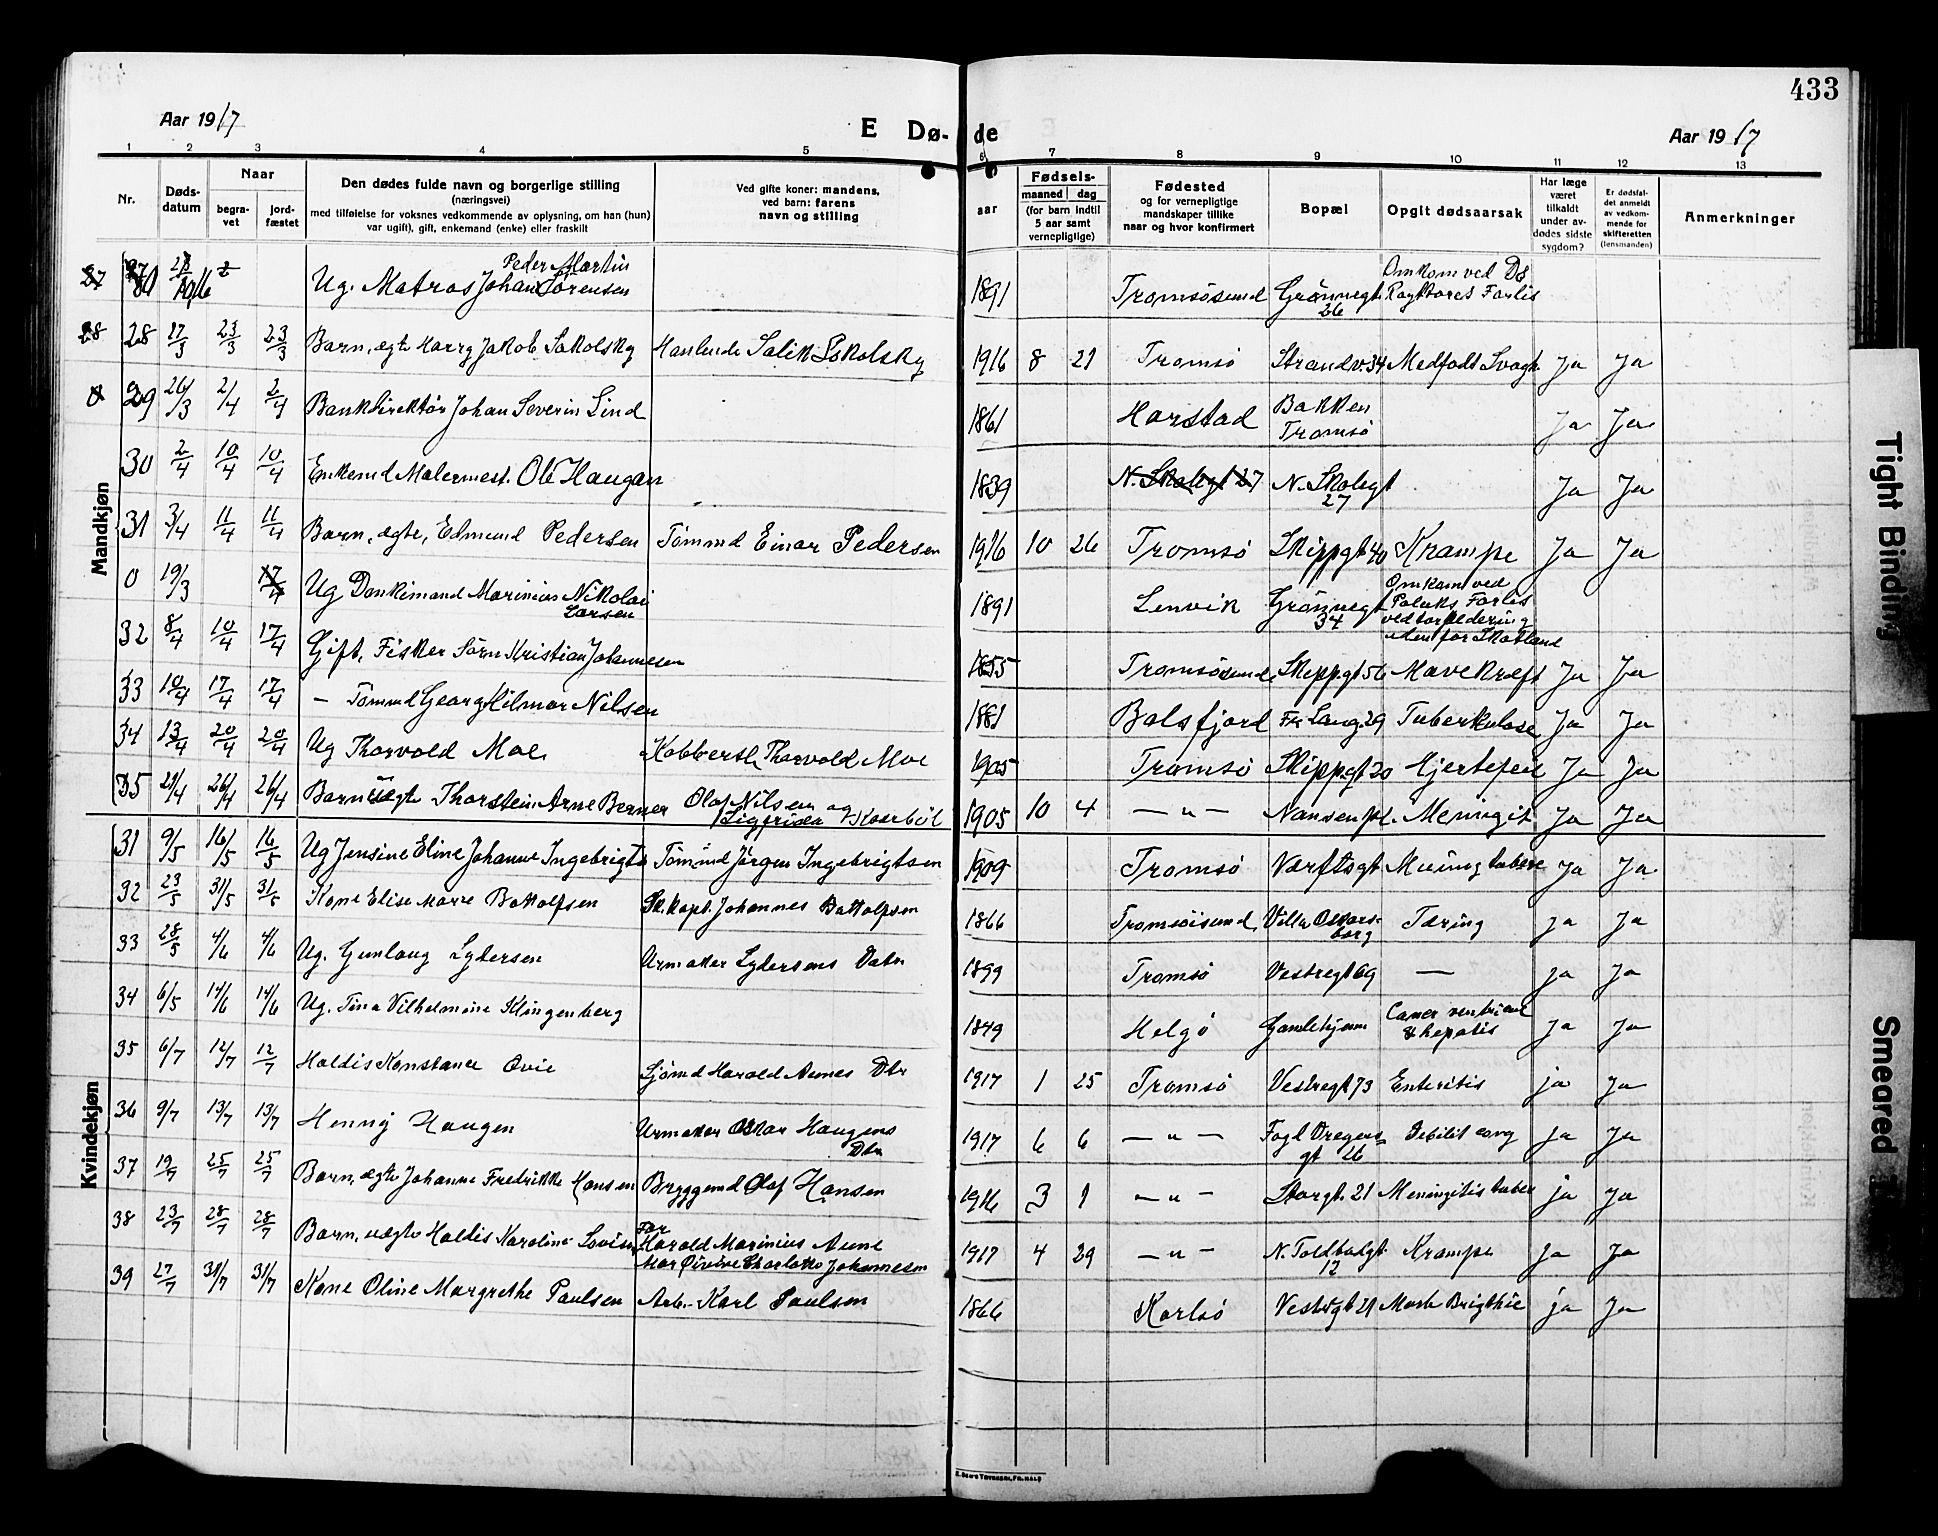 433
Aar 1917
E Dø- de
Aar 1917
1 2 3 4 5 6 7 8 9 10 11 12 13
Nr.
Døds-
datum
Naar
begra-
vet
jord-
fæstet
Den dødes fulde navn og borgerlige stilling
(næringsvei)
med tilføielse for voksnes vedkommende av oplysning, om han (hun)
var ugift), gift, enkemand (enke) eller fraskilt
Ved gifte koner: mandens,
ved barn: farens
navn og stilling
aar
Fødsels-
maaned dag
(for barn indtil
5 aar samt
vernepligtige)
Fødested
og for vernepligtige
mandskaper tillike
naar og hvor konfirmert
Bopæl
Opgit dødsaarsak
Har læge
været
tilkaldt
under av-
dødes sidste
sygdom?
Er dødsfal-
det anmeldt
av vedkom-
mende for
skifteretten
(lensmanden)
Anmerkninger
Mandkjøn
Ug. Matros Johan Peder Martin Sørensen 1891 Tromsøsund Grønnegt. 26 Omkom ved DS Forlis
28 28 17/3 23/3 23/3 Barn, ægte Harry Jakob Sokolsky Hanlende Salik Sokolsky 1916 8 21 Tromsø Strandv. 34 Medfødt Svagh. Ja Ja
0 29 26/3 2/4 2/4 Bankdirektør Johan Severin Lind 1861 Harstad Bakken Tromsø Ja Ja
30 2/4 10/4 10/4 Enkemd Malermest. Ole Haugan 1839 N. Skolegt 27 N. Skolegt 27 Ja Ja
31 3/4 11/4 11/4 Barn, ægte, Edmund Pedersen Tømmd Einar Pedersen 1916 10 26 Tromsø Skippgt 40 Krampe Ja Ja
0 19/3 17/4 Ug Donkeimand Marinius Nikolai Larsen 1891 Lenvik Grønnegt 34 Omkom ved Forlis ved torpedering Skotland
32 8/4 10/4 17/4 Gift, Fisker Sørn Kristian Johannesen 1855 Tromsøsund Skippgt 56 Mavekræft Ja Ja
33 10/4 17/4 17/4 — Tømmd Georg Hilmar Nilsen 1881 Balsfjord Fr. Lang. 29 Tuberkulose Ja Ja
34 13/4 20/4 20/4 Ug Thorvold Moe Kobbersl. Thorvold Moe 1905 Tromsø Skippgt 20 Hjertefeil Ja Ja
35 21/4 26/4 26/4 Barn uægte Thorstein Arne Berner Olaf Nilsen og 1905 10 4 — " — Nansenpl. Meningit Ja Ja
Kvindekjøn
31 9/5 16/5 16/5 Ug Jensine Eline Johanne Ingebrigts Tømmd Jørgen Ingebrigtsen 1909 Tromsø Værftsgt Ja Ja
32 23/5 31/5 31/5 Kone Elise Marie Bottolfsen Sk.kapt. Johannes Bottolfsen 1866 Tromsøisund Villa Oscarsborg Tæring Ja Ja
33 28/5 4/6 4/6 Ug. Gunlaug Lydersen Urmaker Lydersens Datr 1899 Tromsø Vestregt 69 — Ja Ja
34 6/5 14/6 14/6 Ug. Tina Vilhelmine Klingenberg 1849 Helgø Gamlehjem Cancer ventriculi & hepatis Ja Ja
35 6/7 12/7 12/7 Haldis Konstance Ovie Sjømd Harald Aunes Dtr 1917 1 25 Tromsø Vestregt 73 Enteritis ja Ja
36 9/7 13/7 13/7 Henny Haugen Urmaker Oskar Haugens Dtr 1917 6 6 — " — Fogd Dregers gt 26 Debilit cong ja Ja
37 19/7 25/7 25/7 Barn, ægte Johanne Fredrikke Hansen Bryggemd Olaf Hansen 1916 3 1 — " — Storgt. 21 Meningitis tuber ja Ja
38 23/7 28/7 28/7 Barn, uægte Haldis Karoline Lovise Far Harald Marinius Aune Mor Øivine Charlotte Johannesen 1917 4 29 — " — N. Toldbodgt. 12 Krampe ja Ja
39 27/7 31/7 31/7 Kone Oline Margrethe Paulsen Arb. Karl Paulsen 1866 Karlsø Vestregt 21 Morb Brigthie ja Ja
Tight Binding
Smeared